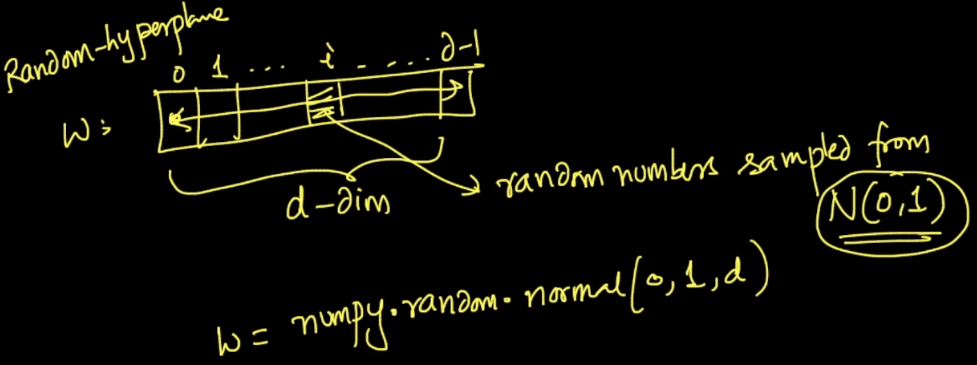 Random-hyperplane
0 1 ... i - ... d-1
W:
d-dim
random numbers sampled from
N(0,1)
W = numpy.random.normal(0,1,d)